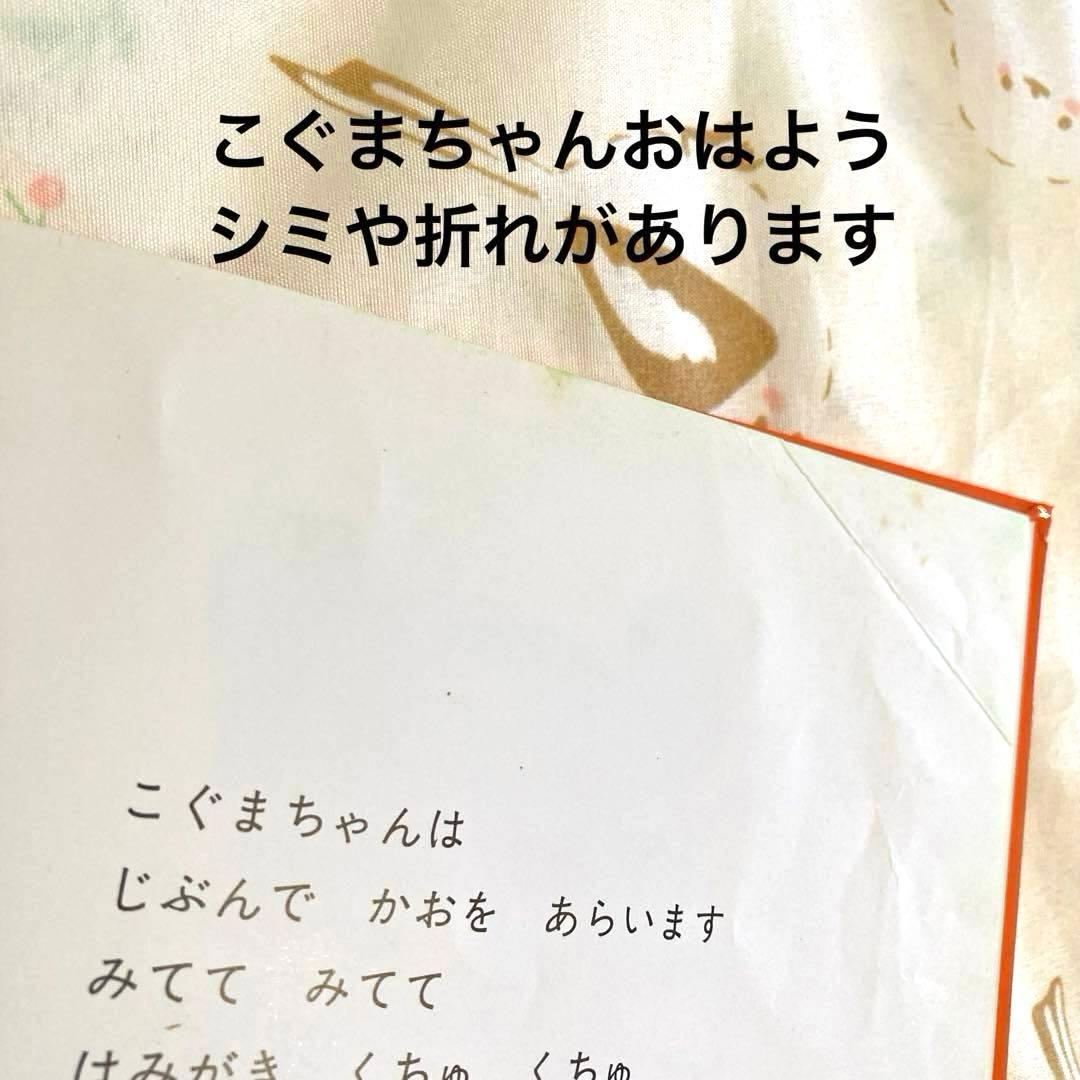 こぐまちゃんおはよう
シミや折れがあります
こぐまちゃんは
じぶんで　かおを　あらいます
みてて　みてて
はみがき　くちゅ　くちゅ